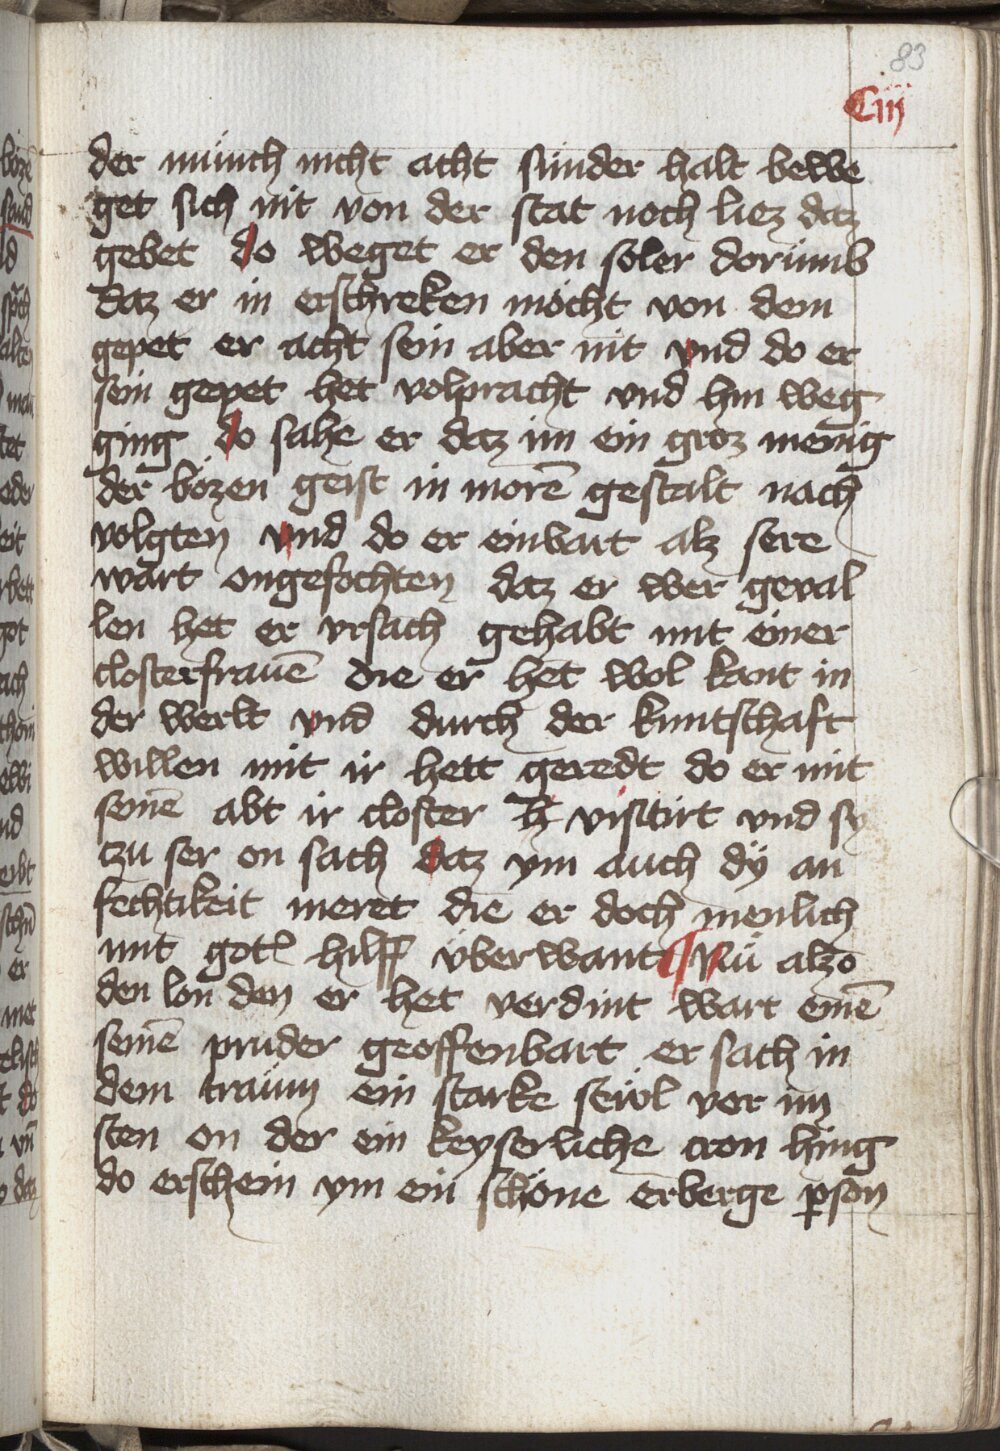 83
Ciij
der münch nicht acht sünder halt bewe
get sich nit von der stat noch liez daz
gebet do weget er den söler dorümb
daz er in erschreken möcht von dem
gepet er acht sein aber nit vnd do er
sein gepet het volpracht vnd hin weg
ging do sahe er daz im ein groz menig
der bözen geist in morē gestalt nach
volgten vnd do er einvart alz sere
wart ongefochten daz er wer geval
len het er vrsach gehabt mit einer
closterfrauē die er het wol kant in
der werlt vnd durch der kuntschaft
willen mit ir hett geredt do er mit
seinē abt ir closter h̄ visitirt vnd sy
tzu ser on sach daz ym auch dÿ an
fechtikeit meret die er doch menlich
mit gotꝭ hilff überwant ¶ Nü alzo
den lon den er het verdint wart einē
seinē pruder geoffenbart er sach in
dem traüm ein starke seiwl vor im
sten on der ein keyserliche cron hing
do erschein ym ein schöne erberge ꝑson